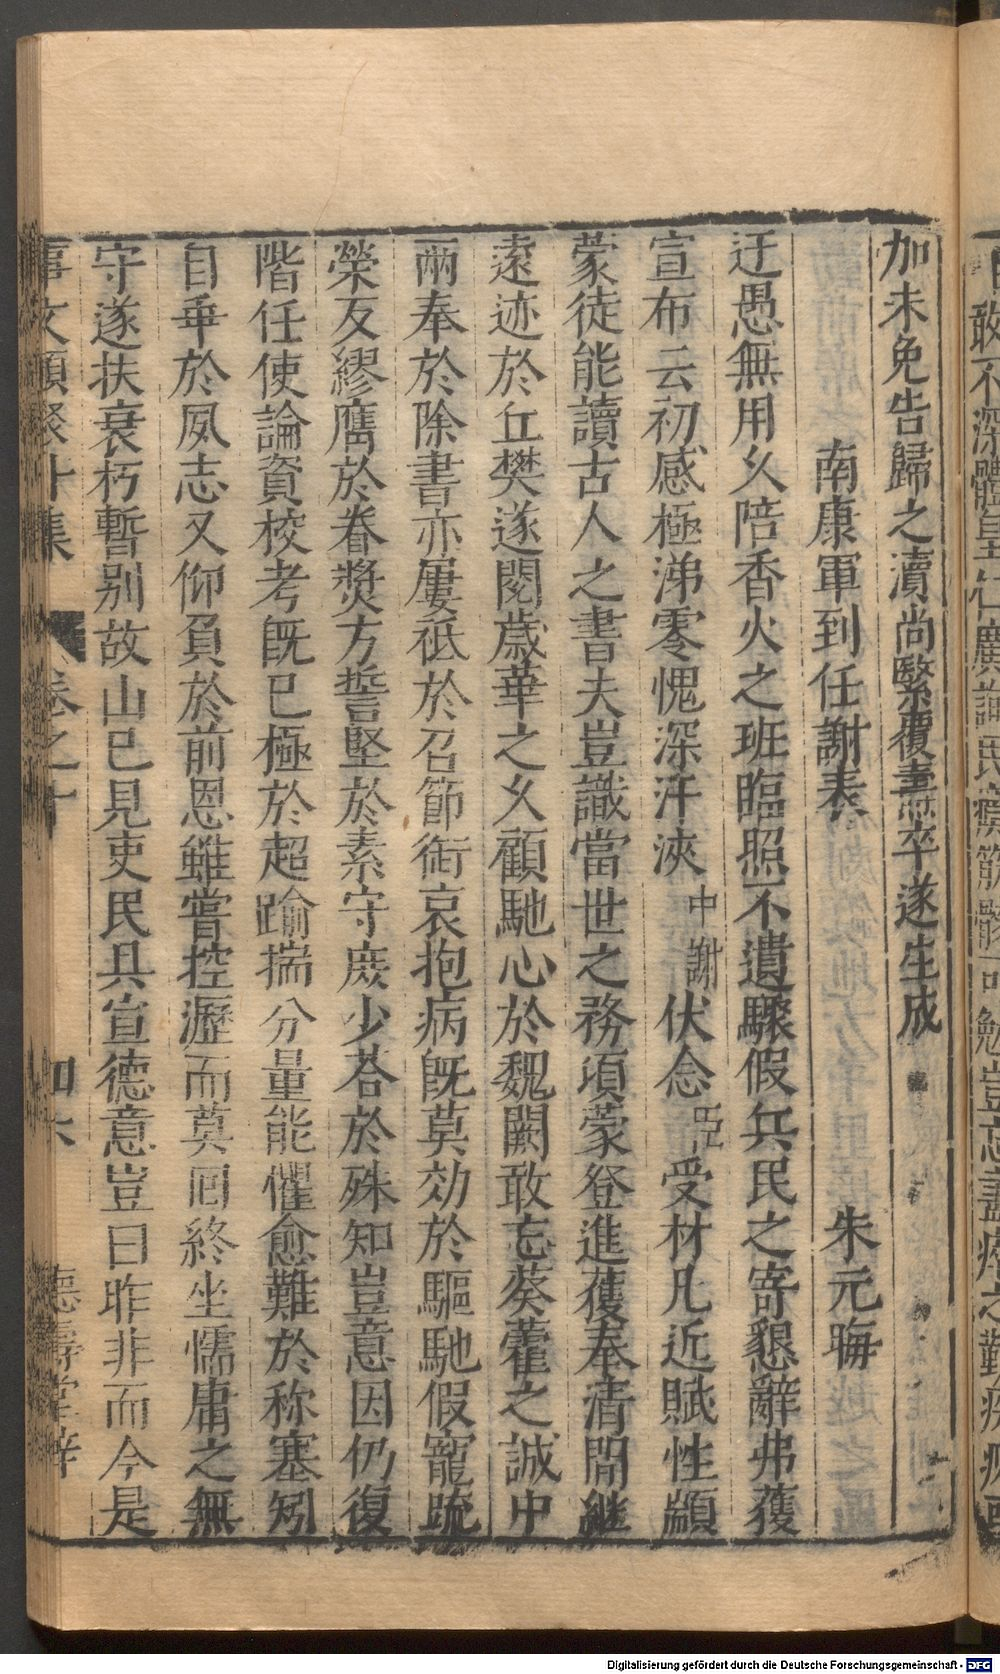 加未免告歸之瀆尚繄覆燾卒遂生成
南康軍到任謝表　朱元晦
迂愚無用久陪香火之班臨照不遺驟假兵民之寄懇辭弗獲
宣布云初感極涕零愧深汗浹中謝伏念臣受材凡近賦性顓
蒙徒能讀古人之書夫豈識當世之務頃蒙登進獲奉清閒繼
遠迹於丘樊遂閱歲華之久顧馳心於魏闕敢忘葵藿之誠中
兩奉於除書亦屢祗於召節銜哀抱病旣莫効於驅馳假寵疏
榮友繆膺於眷奬方誓堅於素守庶少荅於殊知豈意因仍復
階任使論資校考旣已極於超踰揣分量能懼愈難於称塞矧
自乖於夙志又仰負於前恩雖嘗控瀝而莫回終坐懦庸之無
守遂扶衰朽暫别故山已見吏民具宣德意豈曰昨非而今是
事文類聚 集 卷之十 德壽堂梓
敢不深體皇仁廣詢民瘼 豈忘盡瘁之
Digitalisierung gefördert durch die Deutsche Forschungsgemeinschaft - DFG